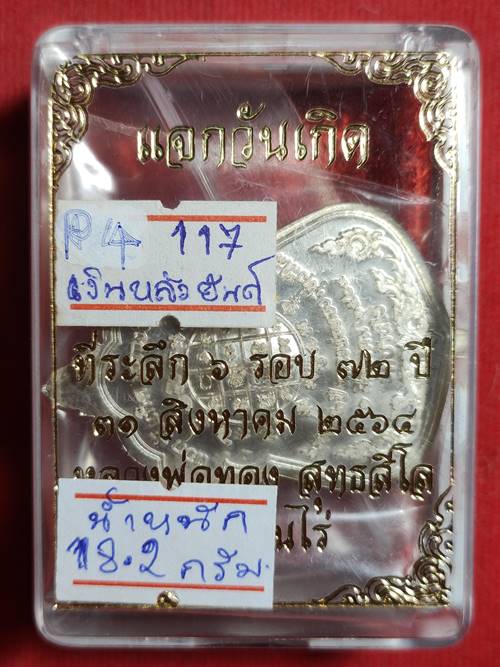 แจกวันเกิด
P4 117
เงินหลังยันต์
ที่ระลึก ๖ รอบ ๗๒ ปี
๓๑ สิงหาคม ๒๕๖๔
หลวงพ่อทอง สุทธสีโล
น้ำหนัก
18.2 กรัม.